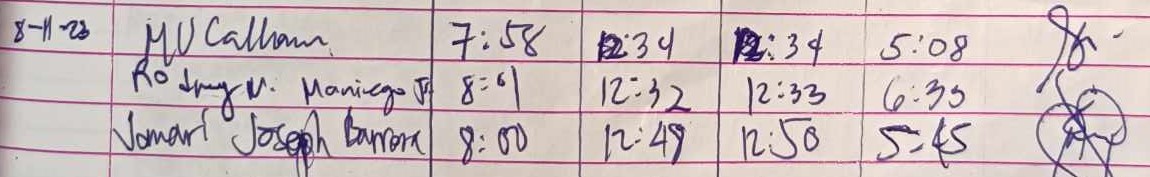 8-11-23 MV Calhoun 7:58 12:34 12:34 5:08
Rodney V. Maniego Jr 8:01 12:32 12:33 6:33
Jomari Joseph Barrora 8:00 12:49 12:50 5:45